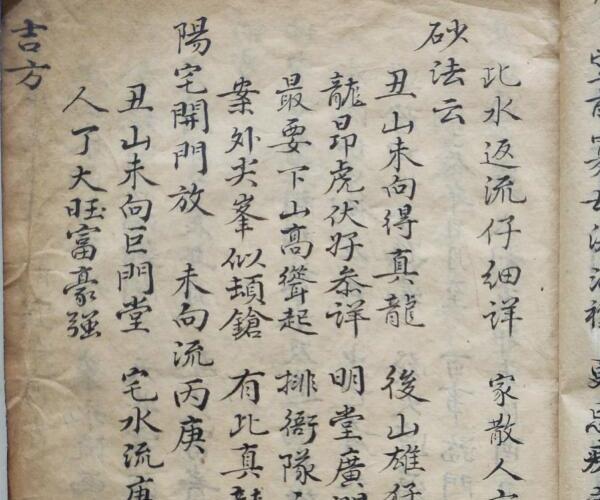 此水返流仔細詳　家散人
砂法云
丑山未向得真龍　後山雄
龍昂虎伏好叅詳　明堂廣
最要下山高聳起　排衙隊
案外尖峯似頓鎗　有此真龍
陽宅開門放　未向流丙庚
丑山未向巨門堂　宅水流庚
人丁大旺富豪強
吉方